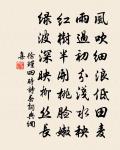 風吹細浪低田麥
雨過初分淺水秧
紅樹半開桃臉嫩
綠波深映柳絲長
徐瑾四時詩